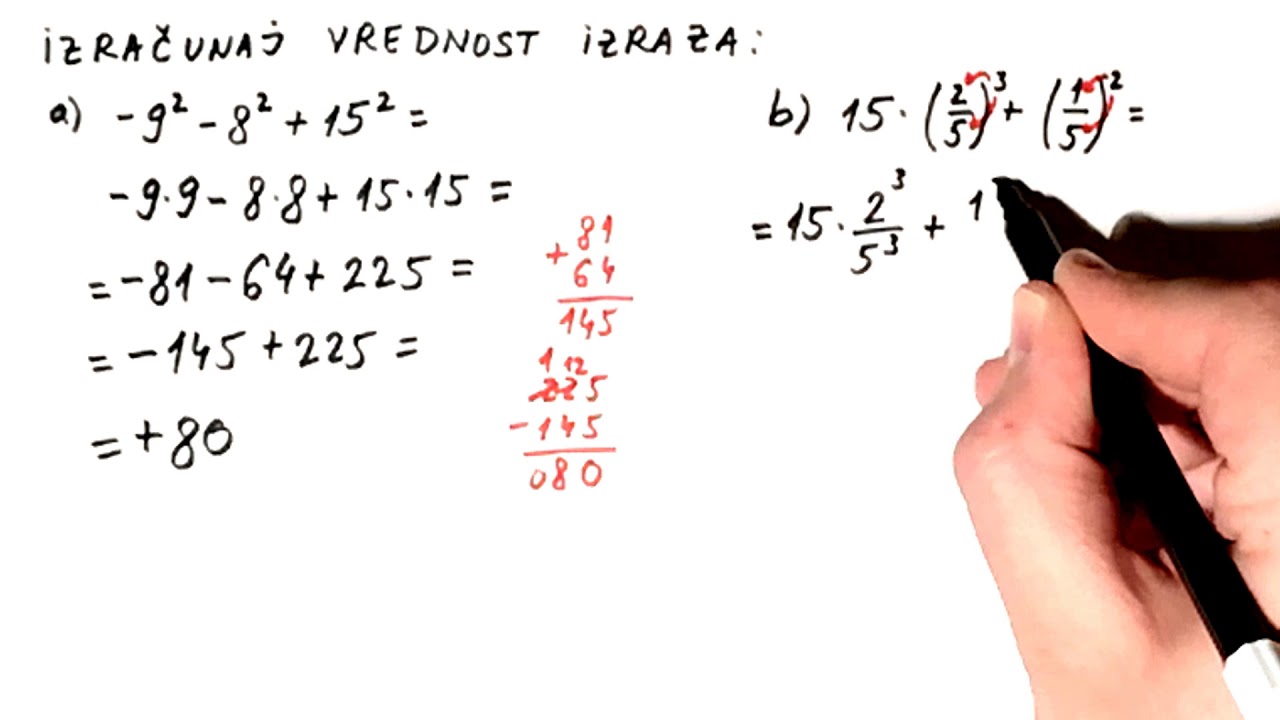 IZRAČUNAJ VREDNOST IZRAZA:
a) -9² - 8² + 15² =
-9·9 - 8·8 + 15·15 =
= -81 - 64 + 225 =
= -145 + 225 =
= +80
81
+ 64
145
1 12
225
- 145
080
b) 15 · (2/5)³ + (1/5)² =
= 15 · 2³/5³ + 1